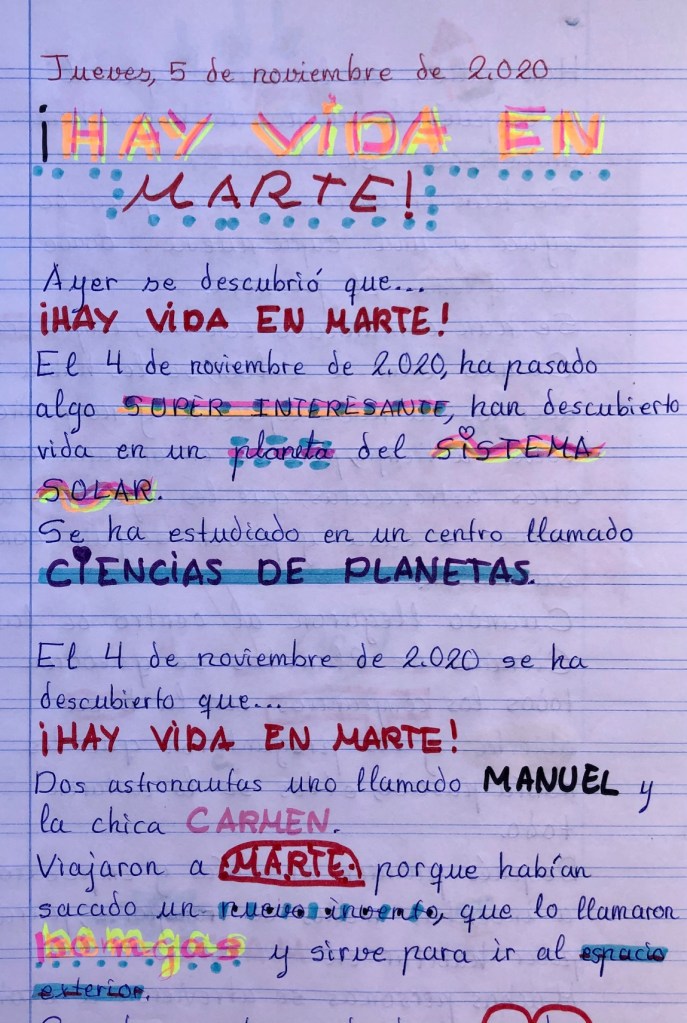 Jueves, 5 de noviembre de 2.020
¡HAY VIDA EN
MARTE!
Ayer se descubrió que...
¡HAY VIDA EN MARTE!
El 4 de noviembre de 2.020, ha pasado
algo SUPER INTERESANTE, han descubierto
vida en un planeta del SISTEMA
SOLAR.
Se ha estudiado en un centro llamado
CIENCIAS DE PLANETAS.
El 4 de noviembre de 2.020 se ha
descubierto que...
¡HAY VIDA EN MARTE!
Dos astronautas uno llamado MANUEL y
la chica CARMEN.
Viajaron a MARTE porque habían
sacado un nuevo invento, que lo llamaron
bomgas y sirve para ir al espacio
exterior.